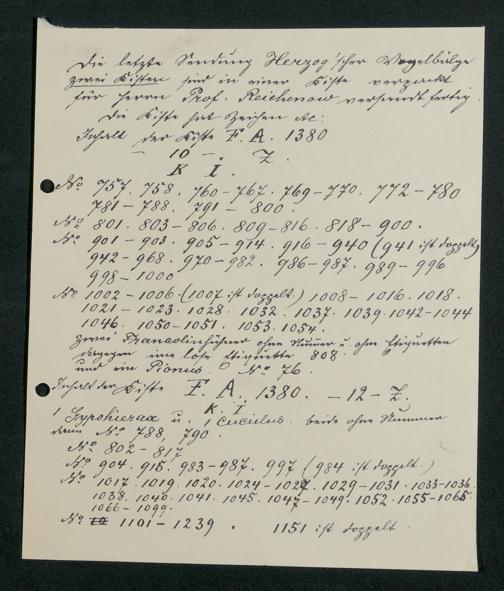 Die letzte Sendung Herzog'scher Vogelbälge
zwei Kisten sind in einer Kiste verpackt
für Herrn Prof. Reichenow versandtfertig.
Die Kiste hat Zeichen etc:
Inhalt der Kiste F. A. 1380
— 10 — . Z.
K I.
No 757. 758. 760-767. 769-770. 772-780
781-788. 791-800.
No 801. 803-806. 809-816. 818-900.
No 901-903. 905-914. 916-940 (941 ist doppelt)
942-968. 970-982. 986-987. 989-996
998-1000
No 1002-1006. (1007 ist doppelt) 1008-1016. 1018.
1021-1023. 1028. 1032. 1037. 1039. 1042-1044
1046. 1050-1051. 1053. 1054.
zwei Francolinhühner ohne Nummer u. ohne Etiquetten
dagegen eine lose Etiquette 808.
und ein Pionus. No 76.
Inhalt der Kiste F. A. 1380. — 12 — Z.
K. I.
1 Gypohierax u. 1 Cuculus beide ohne Nummer
dann No 788, 790.
No 802-817
No 904. 915. 983-987. 997 (984 ist doppelt.)
No 1017. 1019. 1020. 1024-1027. 1029-1031. 1033-1036.
1038. 1040. 1041. 1045. 1047-1049. 1052. 1055-1065.
1066-1099.
No 10 1101-1239. 1151 ist doppelt.